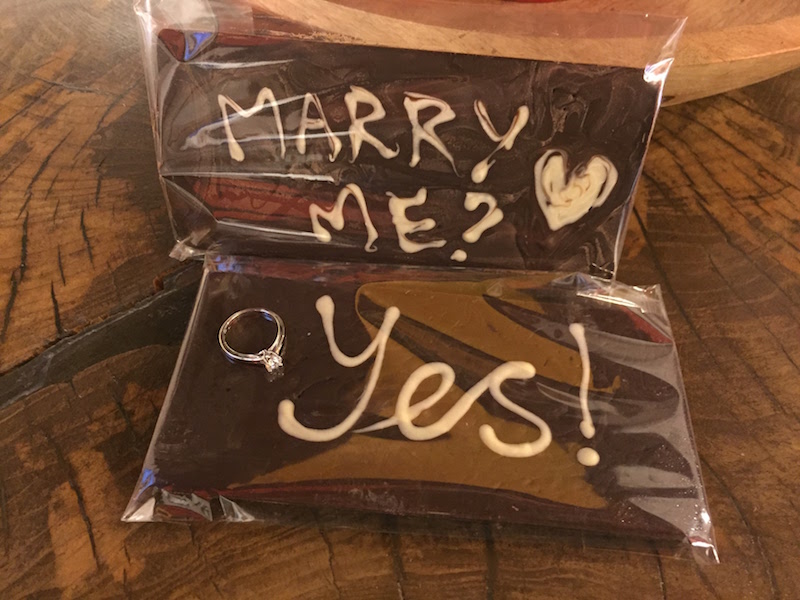 MARRY
ME?
Yes!